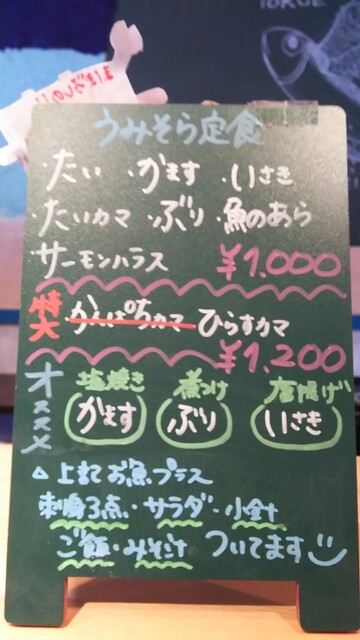 うみそら定食
・たい ・かます ・いさき
・たいカマ ・ぶり ・魚のあら
・サーモンハラス ¥1.000
特大 ・かんぱちカマ ひらすカマ
¥1.200
オススメ 塩焼き 煮つけ 唐揚げ
かます ぶり いさき
上記お魚プラス
刺身3点・サラダ・小鉢
ご飯・みそ汁 ついてます